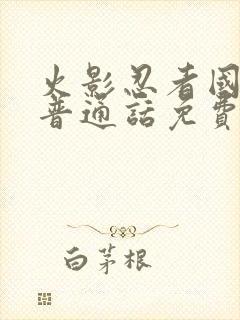 火影忍者國
普通話免費
白茅根